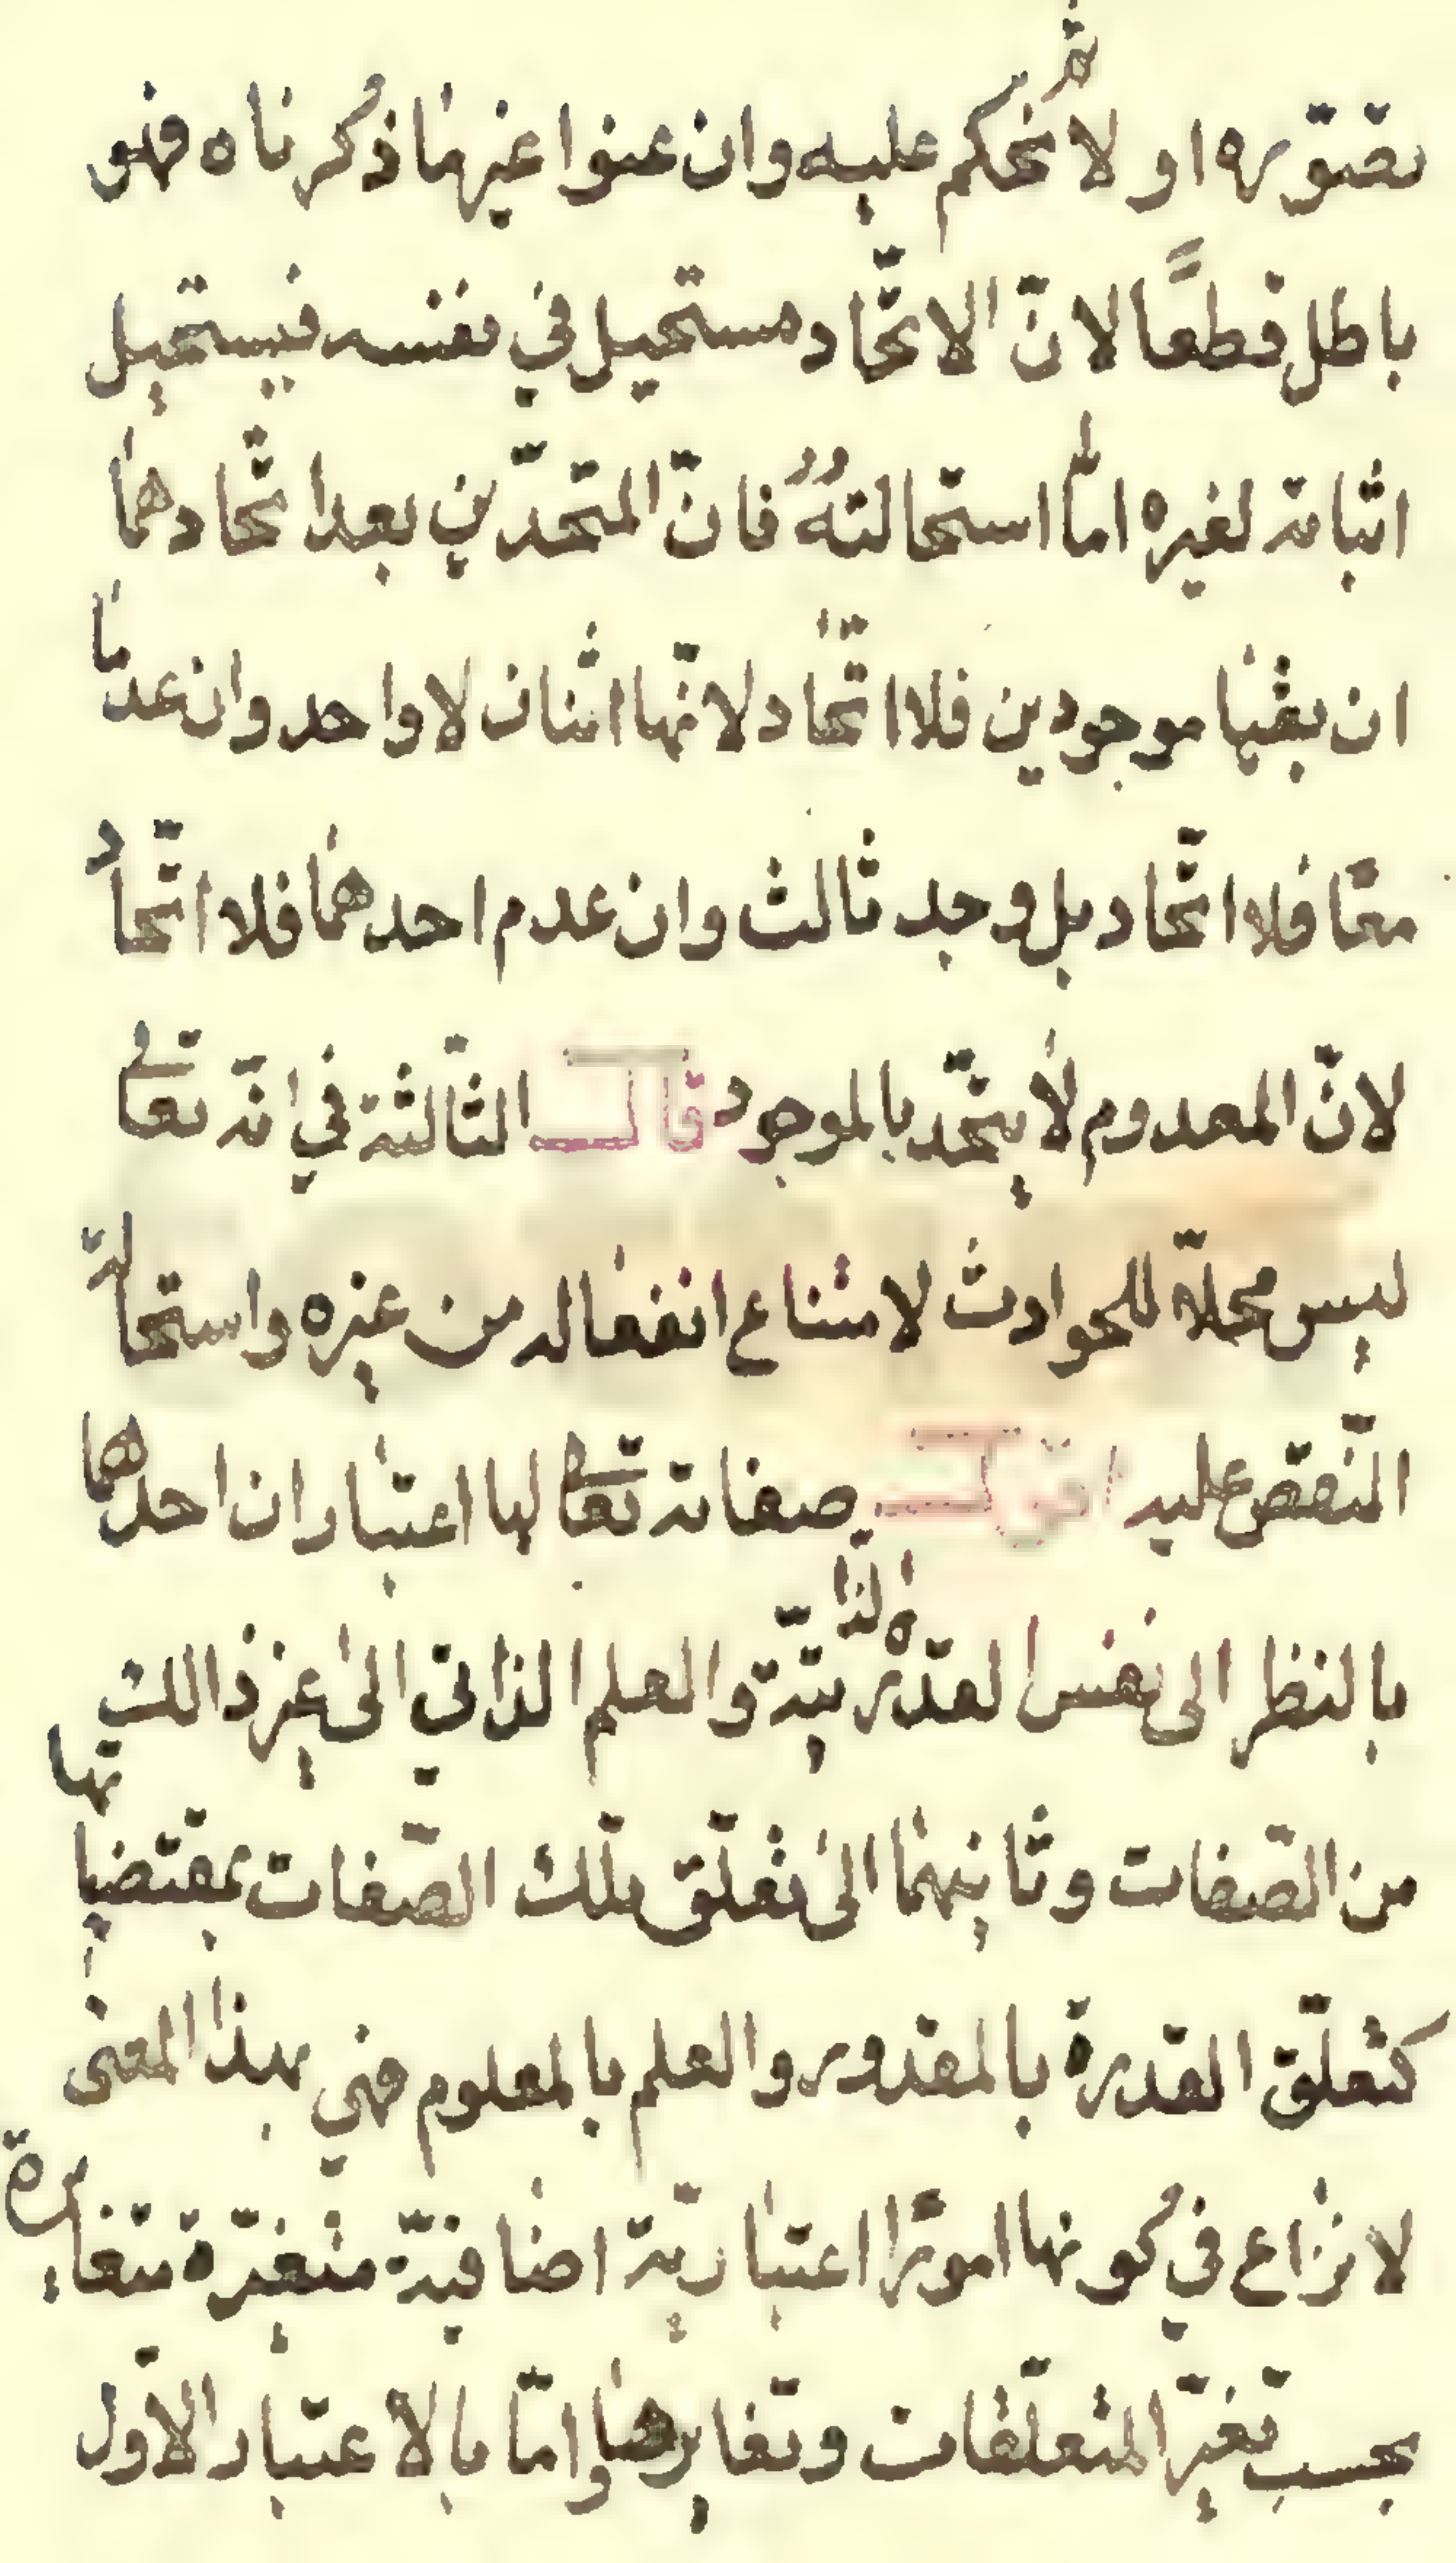 نتصوّره اولا ثم نحكم عليه وان عنوا غير ما ذكرناه فهو
باطل قطعًا لانّ الاتّحاد مستحيل في نفسه فيستحيل
اثباته لغيره امّا استحالتهُ فانّ المتّحدّين بعد اتّحادهما
ان بقيا موجودين فلا اتّحاد لانّهما اثنان لا واحد وان عدما
معًا فلا اتّحاد بل وجد ثالث وان عدم احدهما فلا اتّحاد
لانّ المعدوم لا يتّحد بالموجود قال الثّالثة في انّه تعالى
ليس محلّا للحوادث لامتناع انفعاله من غيره واستحالة
النّقص عليه اقول صفاته تعالى لها اعتباران احدهما
بالنظر الى نفس القدرة الذاتيّة والعلم الذاتي الى غير ذالك
من الصّفات وثانيهما الى تعلّق تلك الصّفات بمقتضياتها
كتعلّق القدرة بالمقدور والعلم بالمعلوم فهي بهذا المعنى
لا نزاع في كونها امورًا اعتباريّة اضافيّة متغيّرة متغايرة
بحسب تغيّر المتعلّقات وتغايرها وامّا بالاعتبار الاوّل